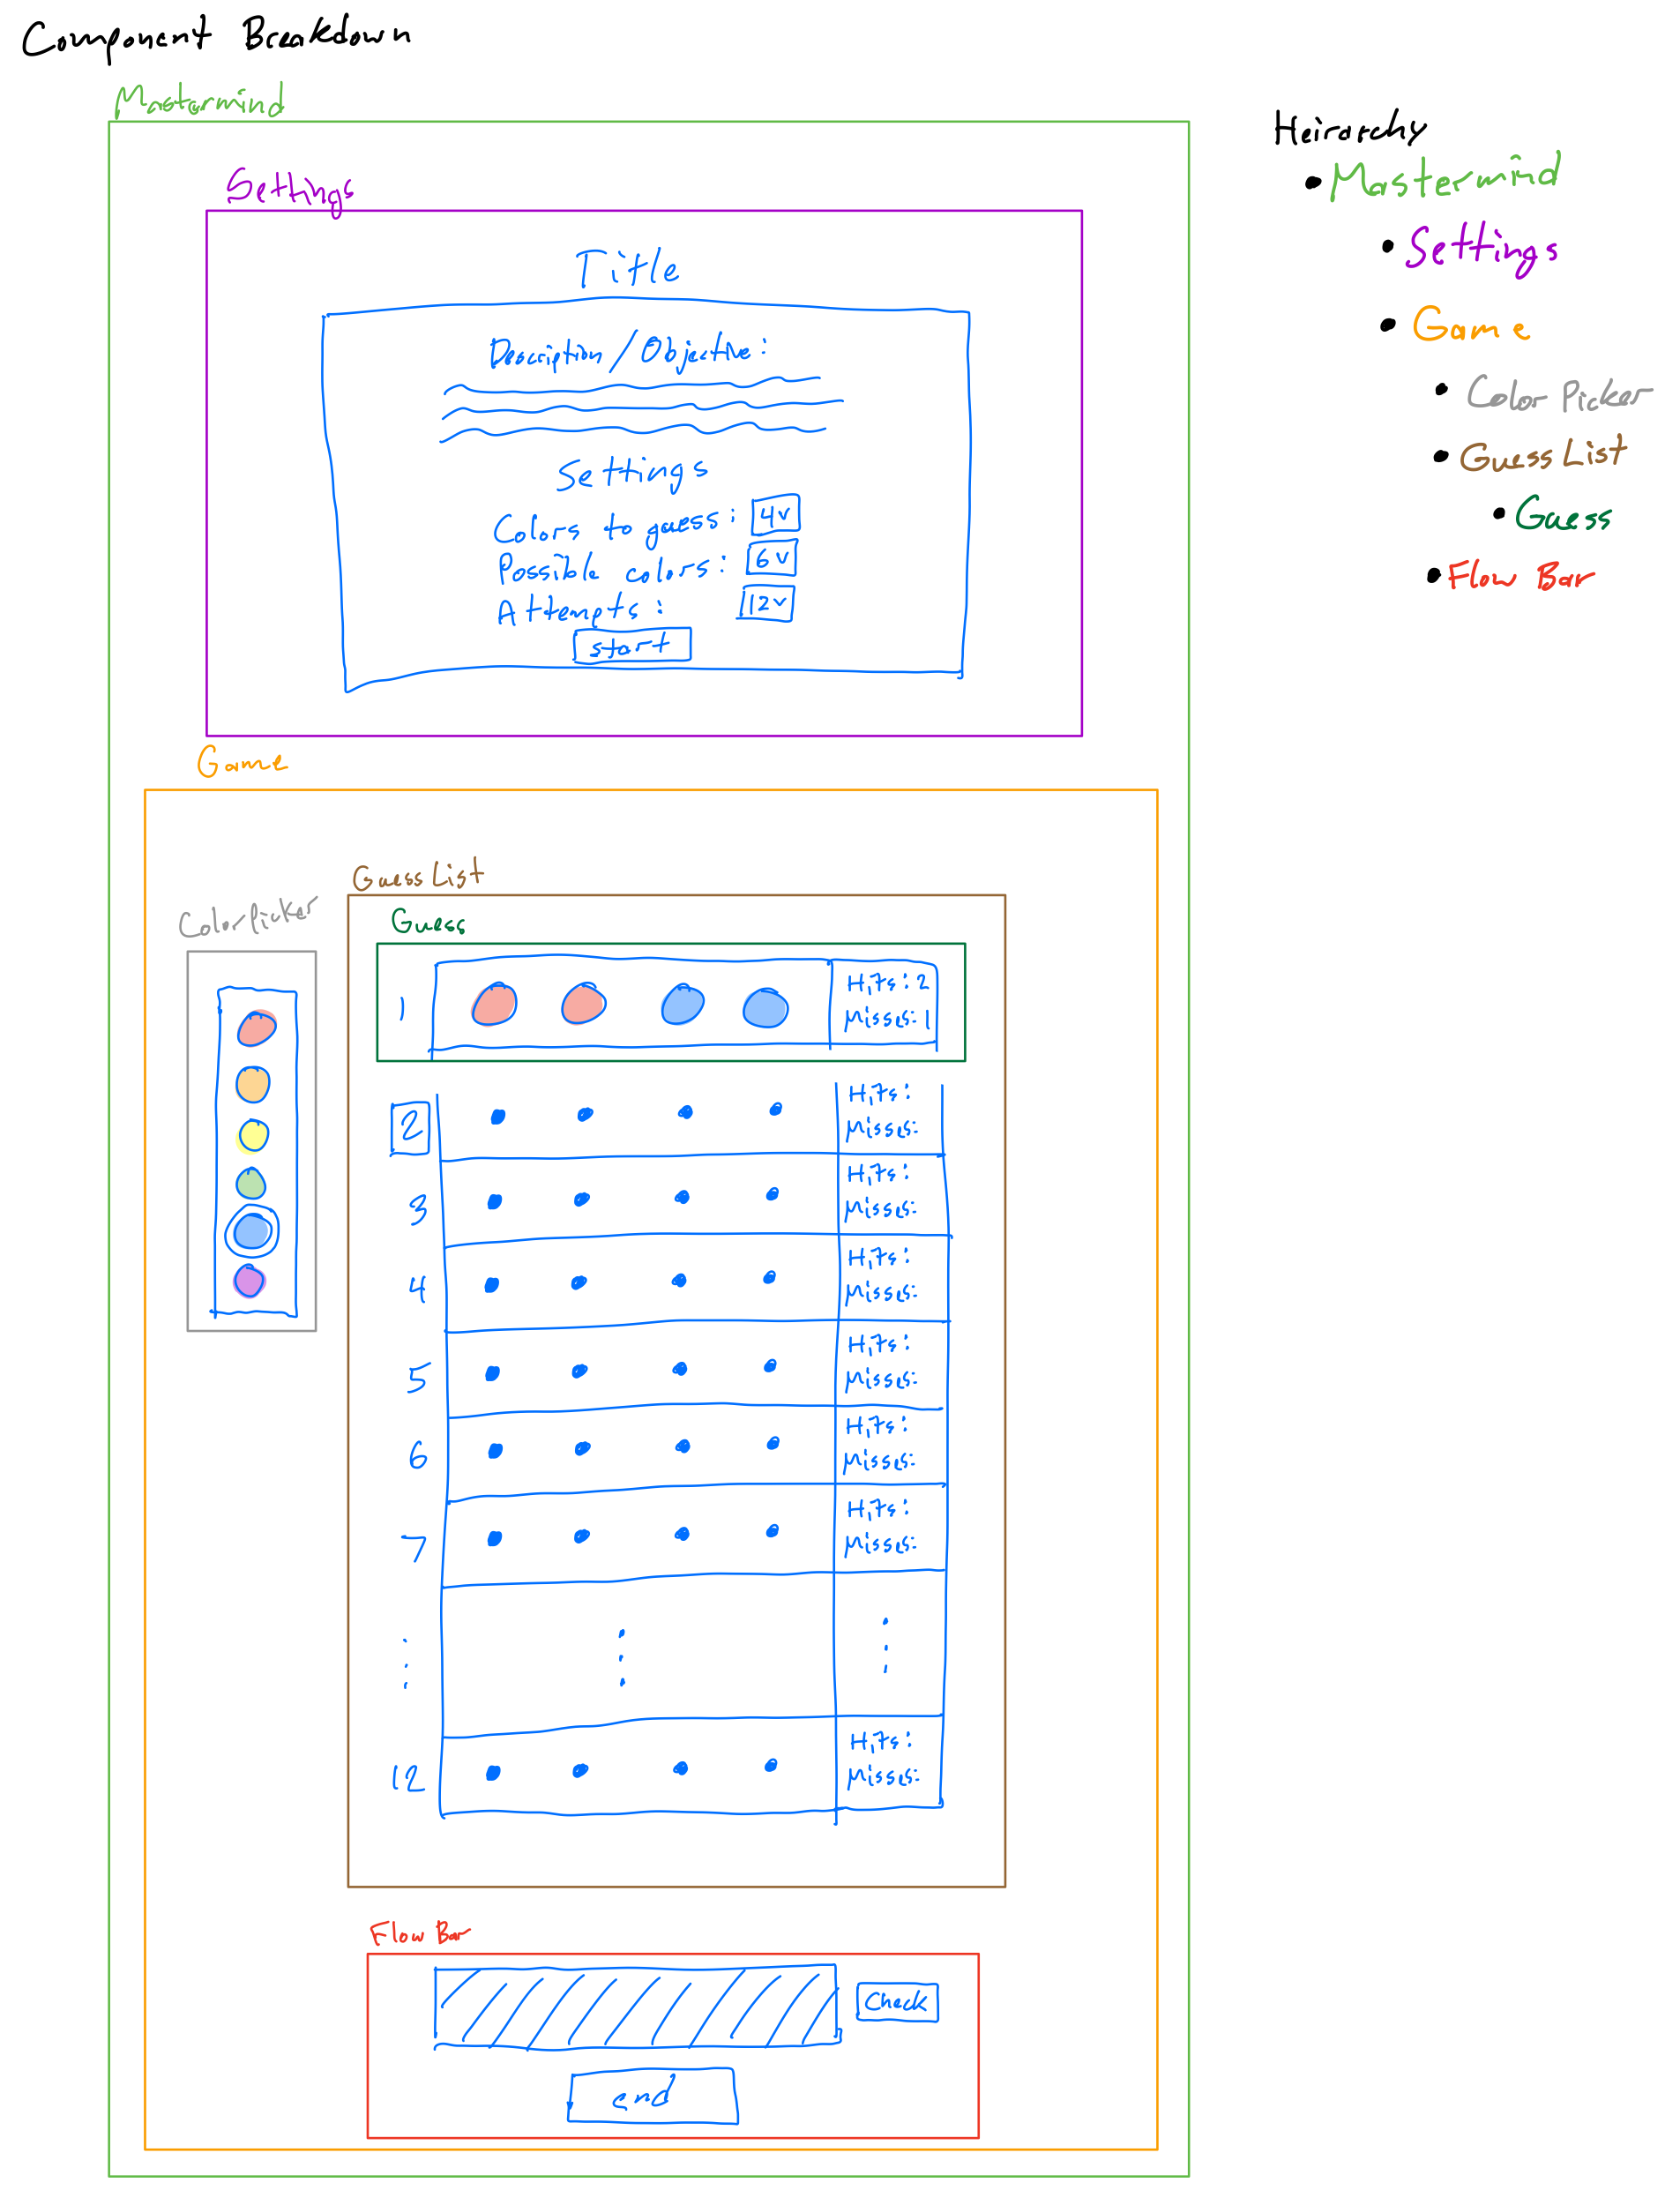 Component Breakdown
Mastermind
Settings
Title
Description/Objective:
Settings
Colors to guess: 4v
Possible colors: 6v
Attempts: 12v
start
Game
Guess List
ColorPicker
Guess
1 Hits: 2
Misses: 1
2 Hits:
Misses:
3 Hits:
Misses:
4 Hits:
Misses:
5 Hits:
Misses:
6 Hits:
Misses:
7 Hits:
Misses:
12 Hits:
Misses:
Flow Bar
Check
end
Heirarchy
• Mastermind
• Settings
• Game
• Color Picker
• Guess List
• Guess
• Flow Bar